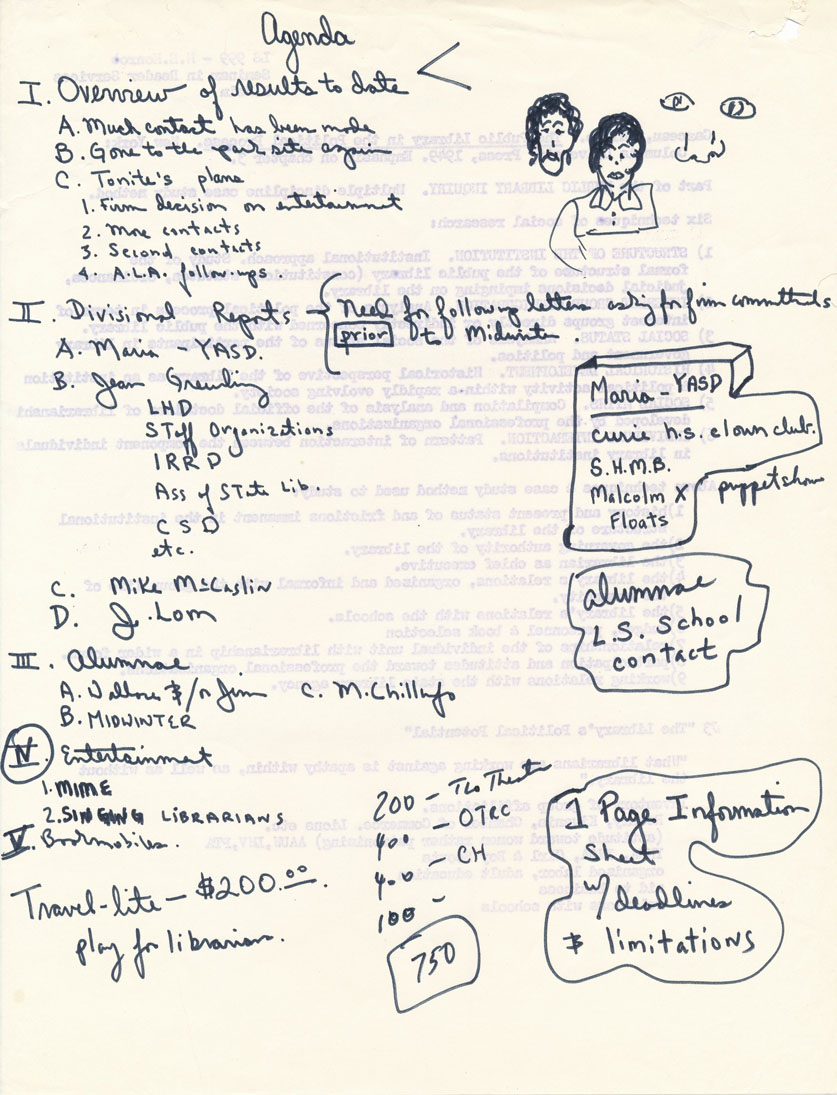 Agenda
I. Overview of results to date
A. Much contact has been made
B. Gone to the site again
C. Tonite's plans
1. Firm decision on entertainment
2. More contacts
3. Second contacts
4. A.L.A. follow-ups.
II. Divisional Reports — Need for following letters asking for firm committments
prior to Midwinter.
A. Maria - YASD.
B. Jean Greuling
LHD
Staff Organizations
IRRD
Ass of State Lib.
CSD
etc.
C. Mike McCaslin
D. J. Lom
Maria - YASD
Curie h.s. clown club.
S.H.M.B.
Malcolm X puppet show
Floats
alumnae
L.S. School
contact
III. Alumnae
A. &/or Jim C. M.
B. MIDWINTER
IV. Entertainment
1. MIME
2. SINGING LIBRARIANS
V. Bookmobiles.
Travel-lite — $200.00.
play for librarians.
200 —
400 — OTRC
400 — CH
100 —
750
1 Page Information
Sheet
w/deadlines
& limitations